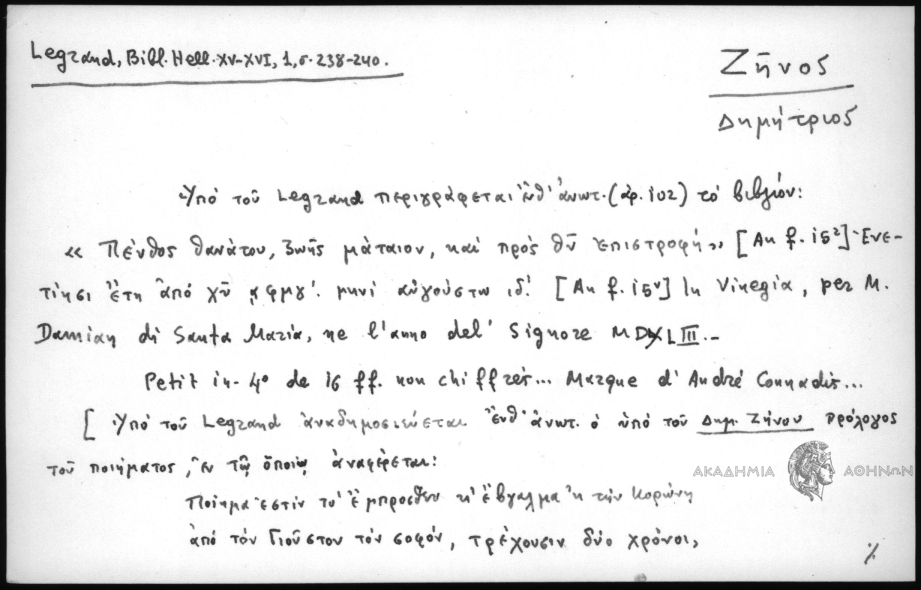 Legrand, Bibl. Hell. XV-XVI, 1, σ. 238-240.
Ζῆνος
Δημήτριος
Ὑπό τοῦ Legrand περιγράφεται ἔνθ' ἀνωτ. (ἀρ. 102) τό βιβλίον:
« Πένθος θανάτου, ζωῆς μάταιον, καί πρός θν ἐπιστροφή» [Au f. 15²] Ἐνε-
τίησι ἔτη ἀπό χῦ ͵αφμγʹ. μηνί αὐγούστω ιδ. [Au f. 15ᵛ] In Vinegia, per M.
Damian di Santa Maria, ne l'anno del' Signore MDXLIII.-
Petit in-4° de 16 ff. non chiffrés... Marque d'André Counadis...
[Ὑπό τοῦ Legrand ἀναδημοσιεύεται ἔνθ' ἀνωτ. ὁ ὑπό τοῦ Δημ. Ζήνου πρόλογος
τοῦ ποιήματος, ἐν τῷ ὁποίῳ ἀναφέρεται:
Ποίημα ἐστίν τό ἔμπροσθεν κ' ἔβγαλμα ἐκ τήν Κορώνη
ἀπό τόν Γιοῦστον τόν σοφόν, τρέχουσιν δύο χρόνοι,
ΑΚΑΔΗΜΙΑ ΑΘΗΝΩΝ
./.